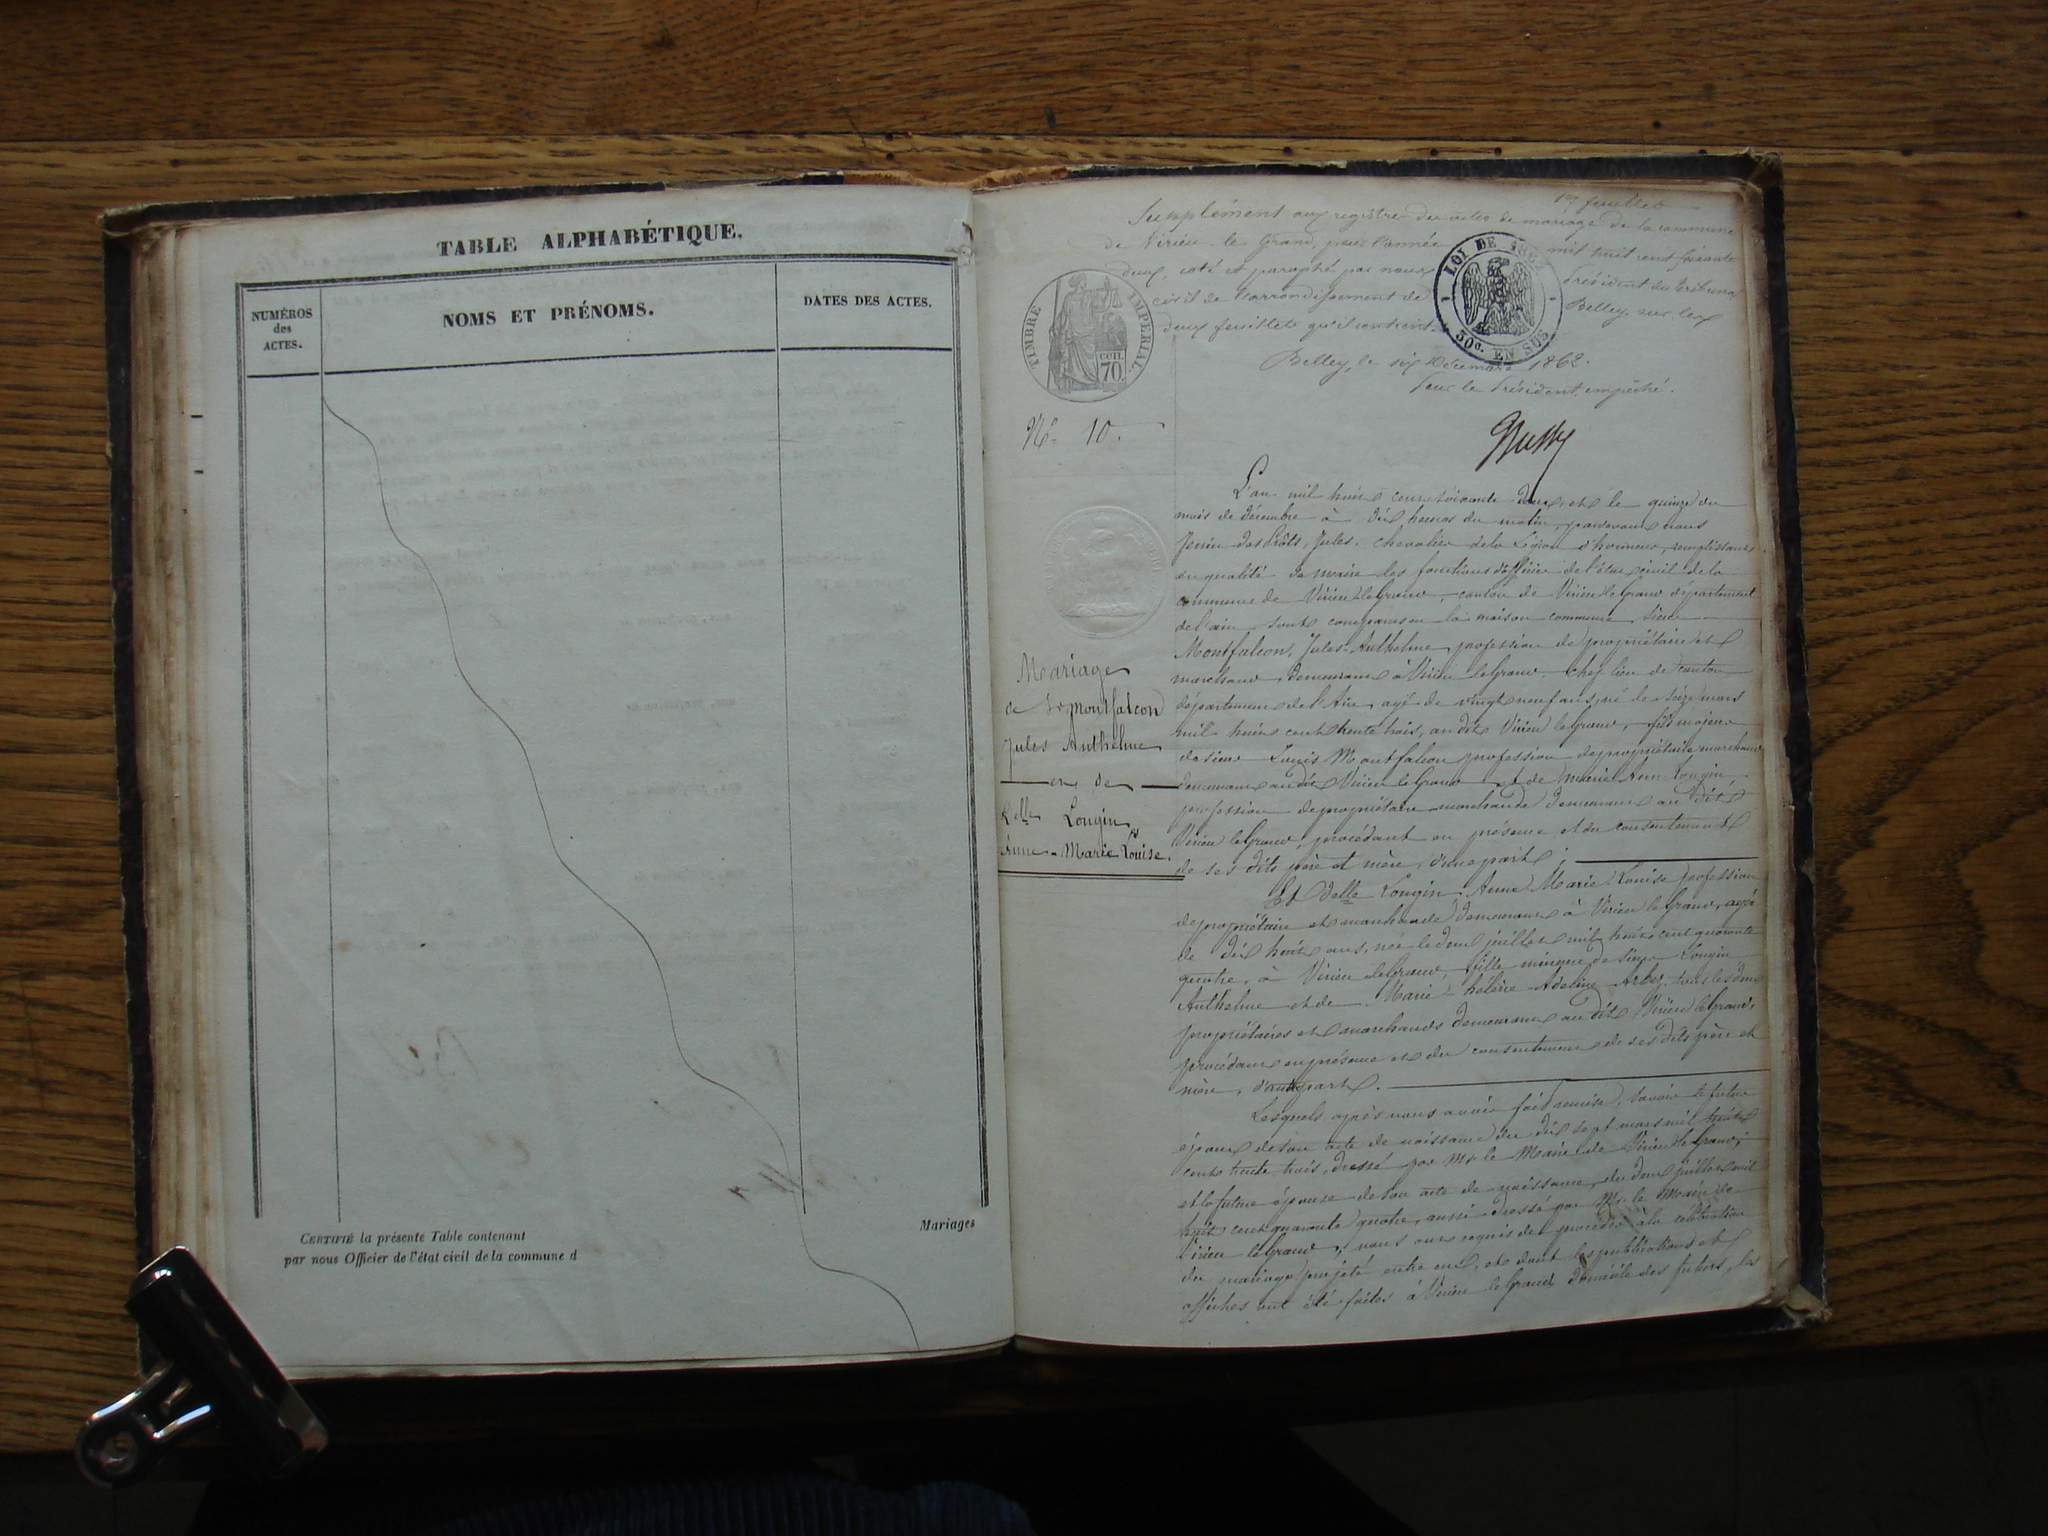 TABLE ALPHABÉTIQUE.
NUMÉROS
des
ACTES.
NOMS ET PRÉNOMS.
DATES DES ACTES.
CERTIFIÉ la présente Table contenant
par nous Officier de l'état civil de la commune d
Mariages
1er feuillet
Supplément aux registres des actes de mariage de la commune
de Virieu-le-Grand, pour l'année mil huit cent soixante
deux, coté et paraphé par nous Président du Tribunal
civil de l'arrondissement de Belley, sur les
deux feuillets qu'il contient.
Belley, le six Décembre 1862.
Pour le Président empêché.
TIMBRE IMPÉRIAL
CEN.
70.
LOI DE 1862
50c. EN SUS
No 10.
Mariage
de Sr Montfalcon
Jules Anthelme
et de
Delle Longin
Anne-Marie Louise.
L'an mil huit cent soixante deux, et le quinze du
mois de décembre à dix heures du matin, pardevant nous
Jules, chevalier de la Légion d'honneur, remplissant
en qualité de maire les fonctions d'officier de l'état civil de la
commune de Virieu le Grand, canton de Virieu le Grand département
de l'ain, sont comparus en la maison commune Sieur
Montfalcon, Jules-Anthelme, profession de propriétaire et
marchand, demeurant à Virieu le Grand, chef lieu de canton
département de l'Ain, agé de vingt neuf ans, né le seize mars
mil huit cent trente trois, au dit Virieu le Grand, fils majeur
de sieur Louis Montfalcon, profession de propriétaire marchand
demeurant au dit Virieu le Grand, et de Marie Ann Longin,
profession de propriétaire marchande demeurant au dit
Virieu le Grand, procédant en présence et du consentement
de ses dits père et mère, d'une part;
Et Delle Longin, Anne Marie Louise profession
de propriétaire et marchande, demeurant à Virieu le Grand, agée
de dix huit ans, née le deux juillet mil huit cent quarante
quatre, à Virieu le Grand, fille mineure de Sieur Longin
Anthelme et de Marie-helène-Adeline tous les deux
propriétaires et marchands demeurant au dit Virieu le Grand,
procédant en présence et du consentement de ses dits père et
mère, d'autre part.
Lesquels après nous avoir fait remise, savoir le futur
époux de son acte de naissance du dix sept mars mil huit
cent trente trois, dressé par Mr le Maire de Virieu le Grand;
et la future épouse de son acte de naissance, du deux juillet mil
huit cent quarante quatre, aussi dressé par Mr le Maire de
Virieu le Grand, nous ont requis de procéder à la célébration
du mariage projeté entre eux, et dont les publications et
affiches ont été faites à Virieu le Grand domicile des futurs, les